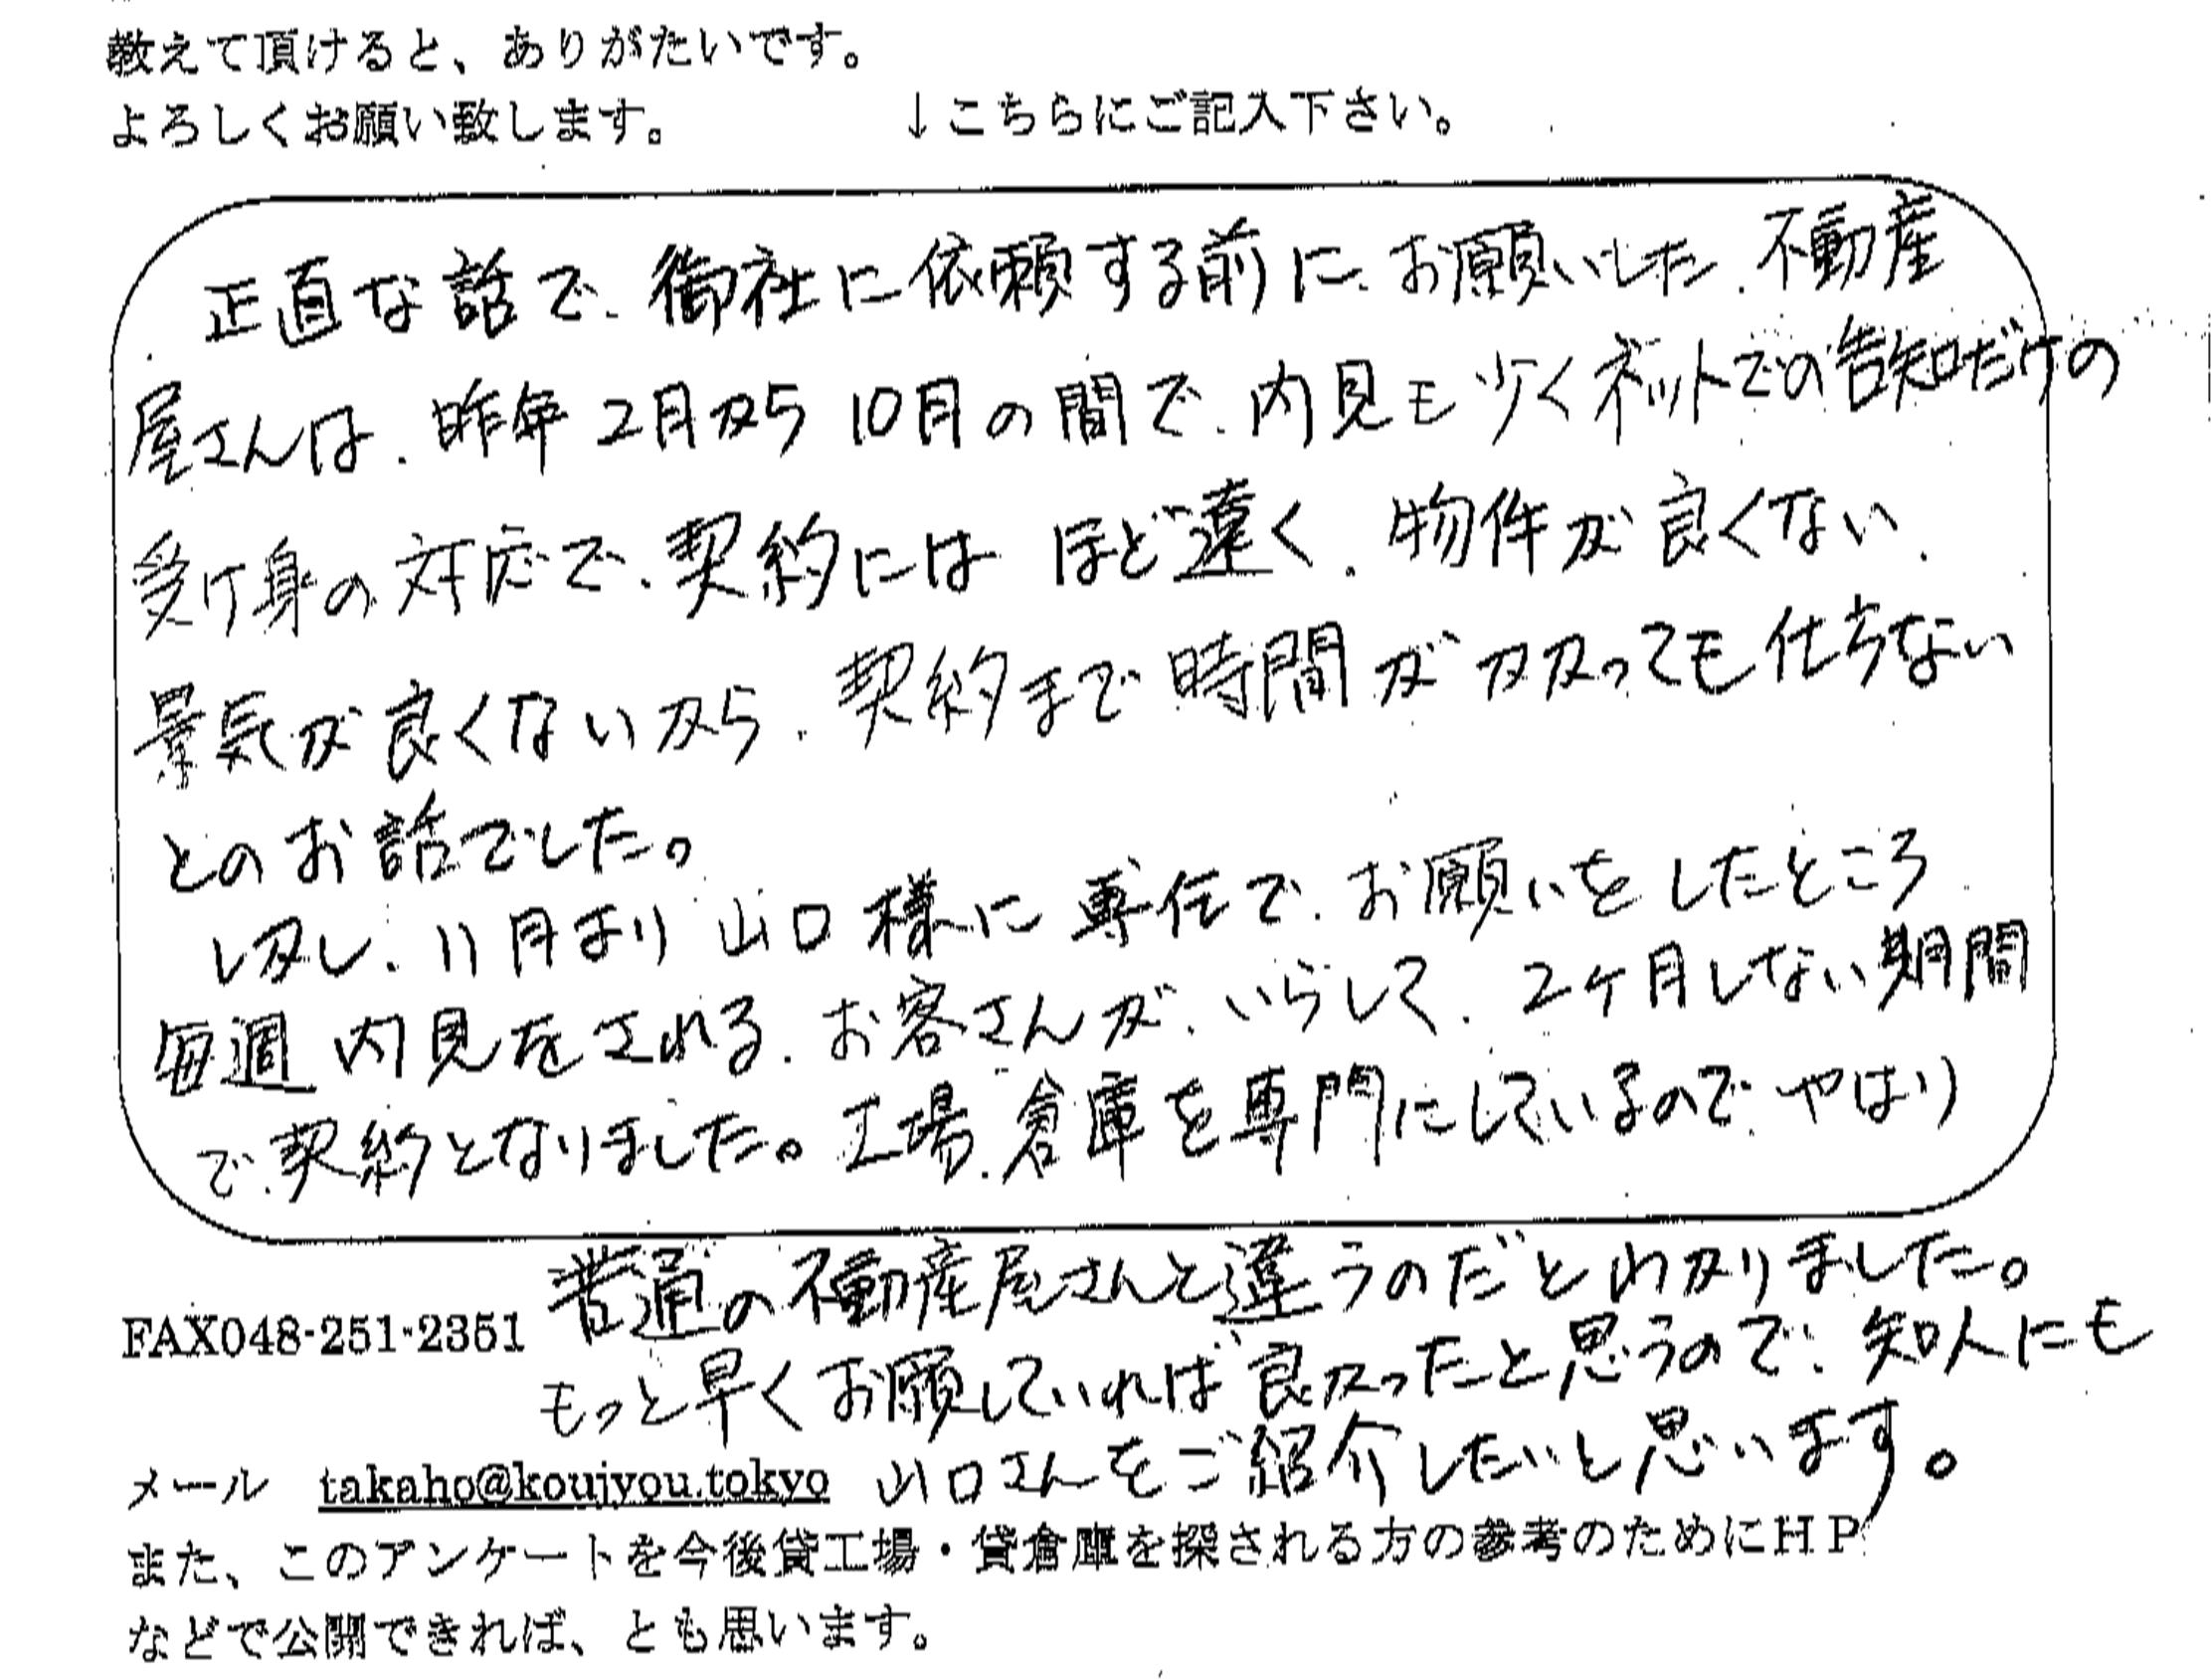 教えて頂けると、ありがたいです。
よろしくお願い致します。　↓こちらにご記入下さい。
正直な話で、御社に依頼する前に、お願いした、不動産
屋さんは、昨年2月から10月の間で、内見も少くネットでの告知だけの
受け身の対応で、契約にはほど遠く、物件が良くない、
景気が良くないから、契約まで時間がかかっても仕方ない
とのお話でした。
しかし、11月より山口様に専任で、お願いをしたところ
毎週内見をされる、お客さんが、いらして、2ヶ月しない期間
で、契約となりました。工場、倉庫を専門にしているのでやはり
普通の不動産屋さんと違うのだとわかりました。
FAX048-251-2351
もっと早くお願していれば良かったと思うので、知人にも
メール　takaho@koujyou.tokyo　山口さんをご紹介したいと思います。
また、このアンケートを今後貸工場・貸倉庫を探される方の参考のためにＨＰ
などで公開できれば、とも思います。